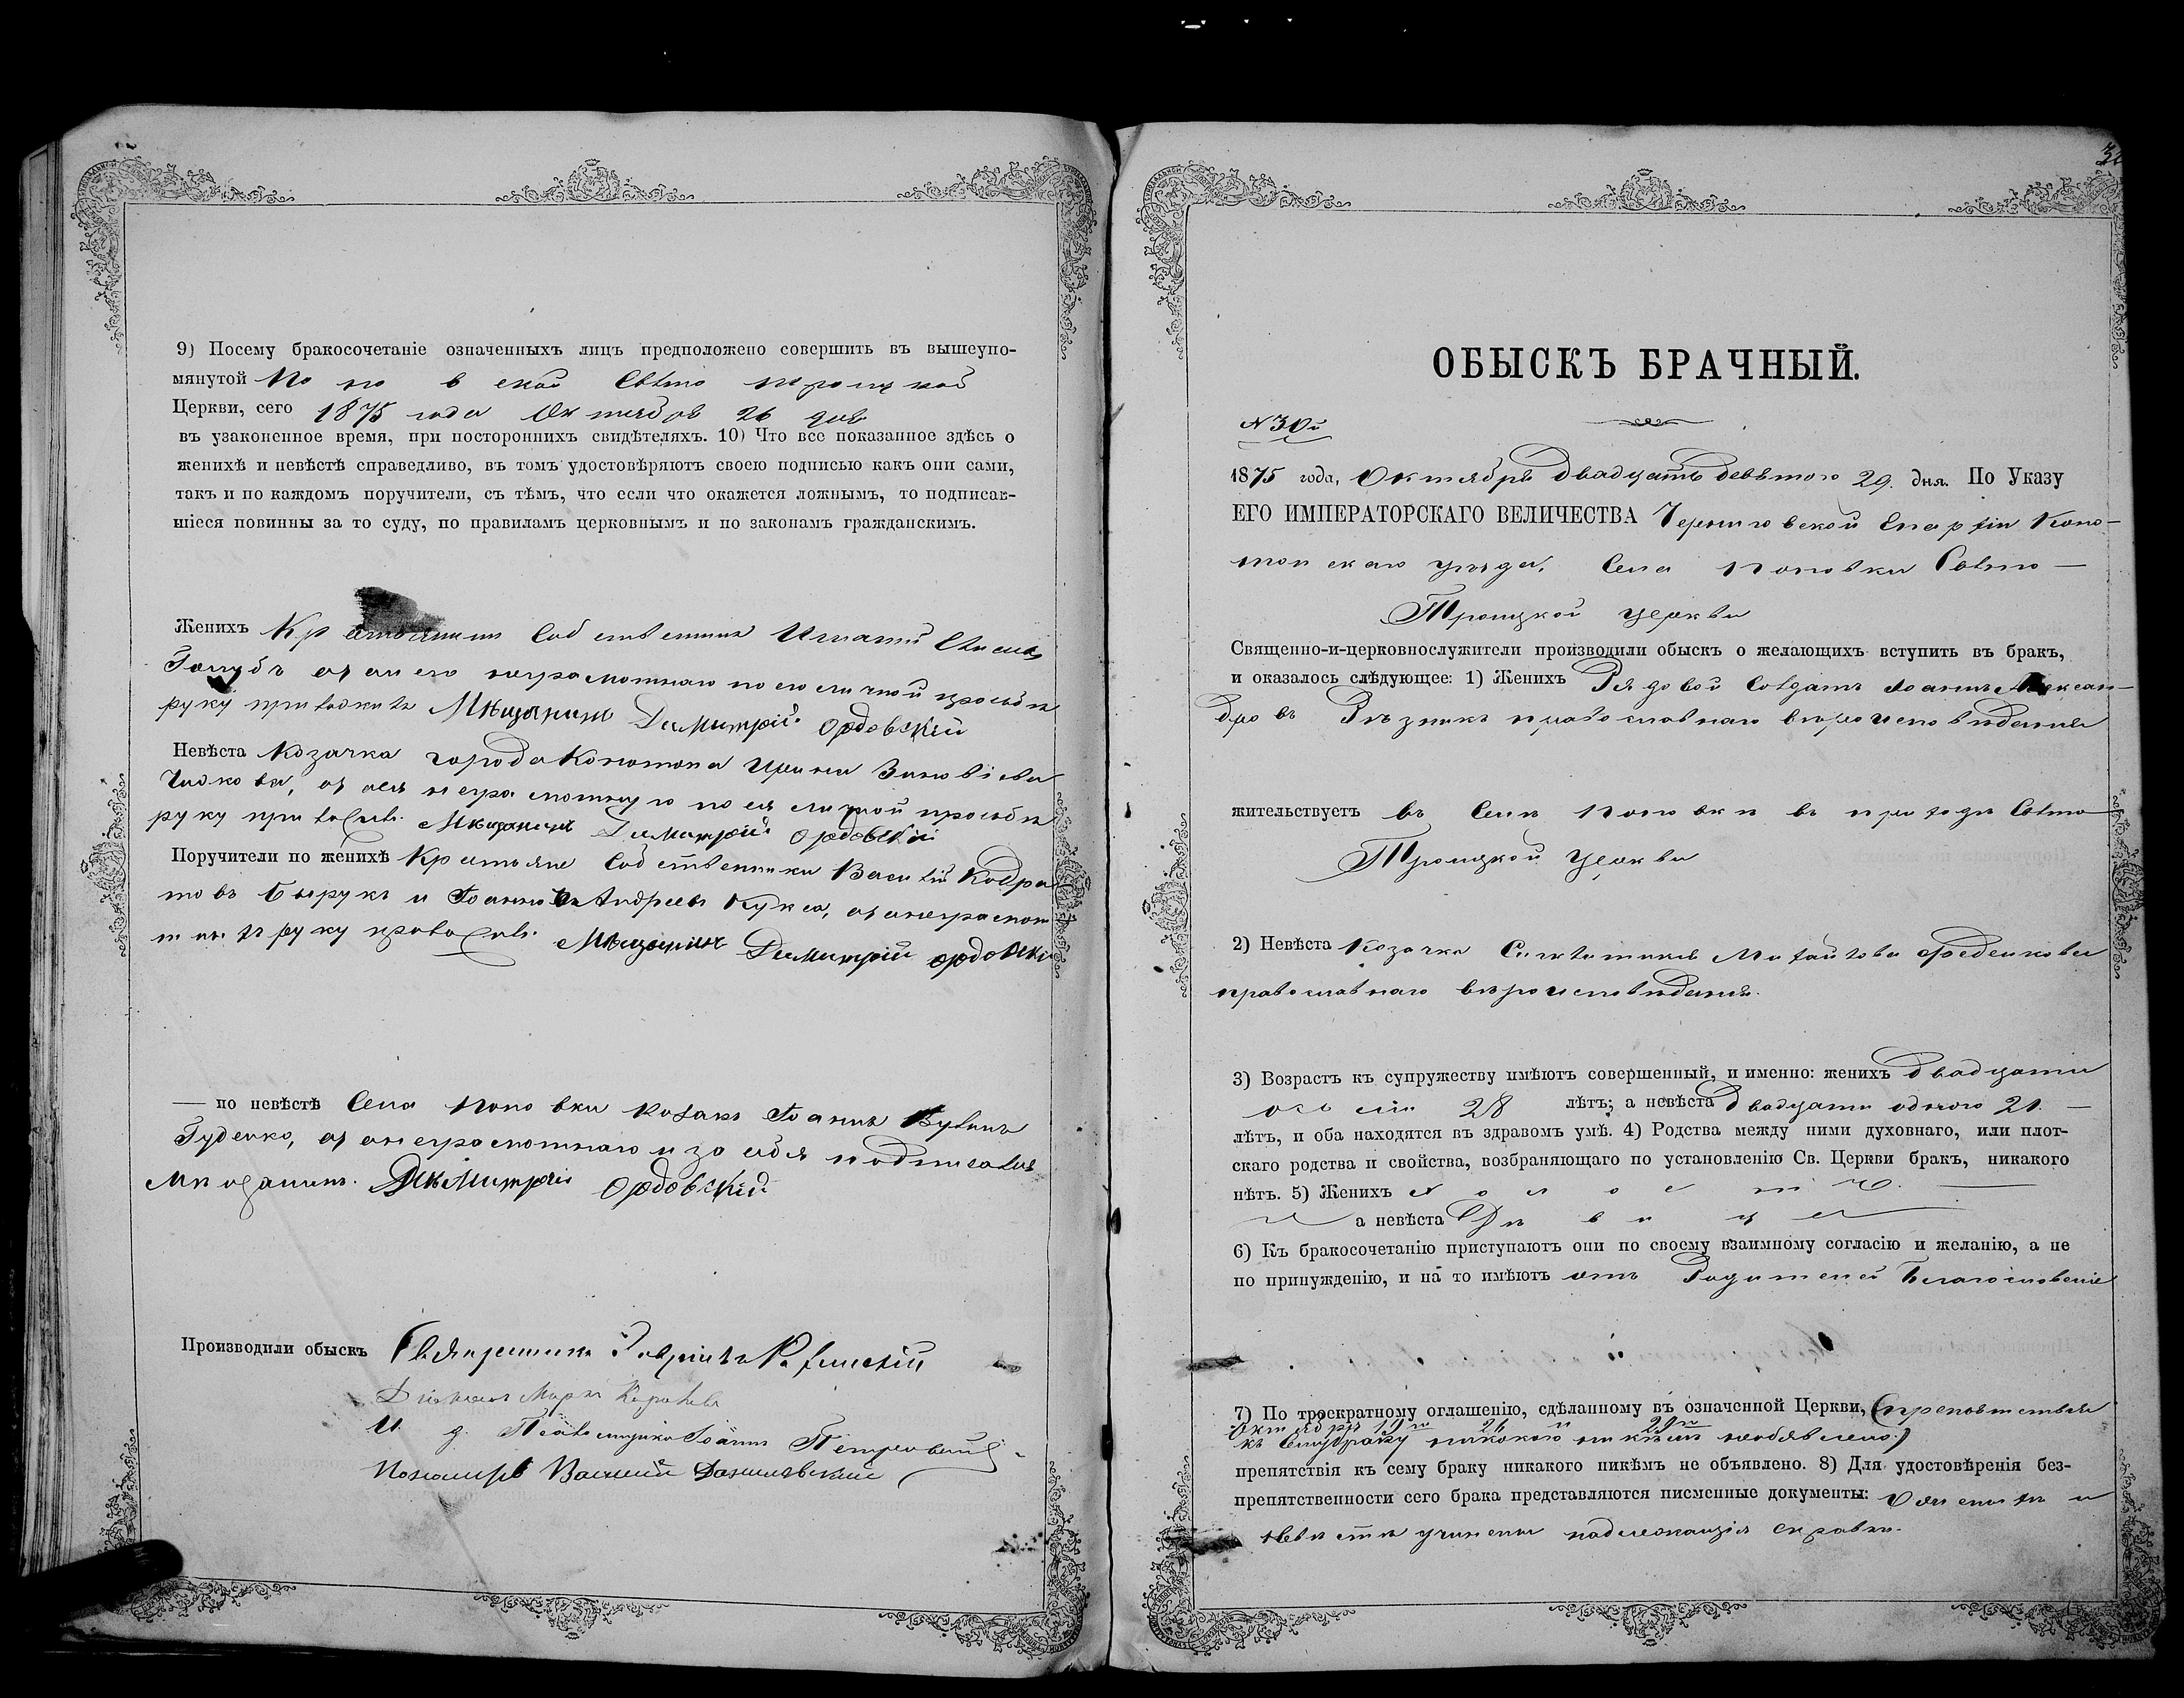 9) Посему бракосочетаніе означенныхъ лицъ предположено совершить въ вышеупо-
мянутой Поповской Свято Троицкой
Церкви, сего 1875 года Октября 26 дня
въ узаконенное время, при постороннихъ свидѣтеляхъ. 10) Что все показанное здѣсь о
женихѣ и невѣстѣ справедливо, въ томъ удостовѣряютъ своею подписью какъ они сами,
такъ и по каждомъ поручители, съ тѣмъ, что если что окажется ложнымъ, то подписав-
шіеся повинны за то суду, по правиламъ церковнымъ и по законамъ гражданскимъ.
Женихъ Крестьянинъ Собственникъ Игнатій
Голубъ а за него неграмотнаго по его личной прозьбѣ
руку приложилъ Мѣщанинъ Димитрій Ордовскій
Невѣста Козачка города Конотопа Ирина Зиновіева
а за нея неграмотную по ея личной прозьбѣ
руку приложилъ Мѣщанинъ Димитрій Ордовскій
Поручители по женихѣ Крестьяне Собственники Василій Кодра-
товъ Бырукъ и Іоаннъ Андреевъ Кукса, а за неграмот
ныхъ руку приложилъ Мѣщанинъ Димитрій Ордовскій
— по невѣстѣ Села Поповки козакъ Іоаннъ
Гуденко, а за неграмотнаго и за себя подписался
Мѣщанинъ Димитрій Ордовскій
Производили обыскъ Священникъ Гавріилъ
Діаконъ Маркъ
И. д. Псаломщика Іоаннъ Петровскій
Пономарь Василій Данилевскій
ОБЫСКЪ БРАЧНЫЙ.
№ 30й
1875 года, Октября двадцать девятого 29. дня. По Указу
ЕГО ИМПЕРАТОРСКАГО ВЕЛИЧЕСТВА Черниговской Епархіи Коно-
топскаго уѣзда, Села Поповки Свято—
Троицкой церкви
Священно-и-церковнослужители производили обыскъ о желающихъ вступить въ бракъ,
и оказалось слѣдующее: 1) Женихъ Рядовой Солдатъ Іоаннъ Алексан-
дровъ Рѣзникъ православнаго вѣроисповѣданія
жительствуетъ въ Селѣ Поповкѣ въ приходѣ Свято
Троицкой Церкви
2) Невѣста Козачка Михайлова Феденкова
православнаго вѣроисповѣданія.
3) Возрастъ къ супружеству имѣютъ совершенный, и именно: женихъ двадцати
осьми 28 лѣтъ; а невѣста двадцати одного 21. —
лѣтъ, и оба находятся въ здравомъ умѣ. 4) Родства между ними духовнаго, или плот-
скаго родства и свойства, возбраняющаго по установленію Св. Церкви бракъ, никакого
нѣтъ. 5) Женихъ холостъ.
а невѣста Дѣвица
6) Къ бракосочетанію приступаютъ они по своему взаимному согласію и желанію, а не
по принужденію, и на то имѣютъ отъ Родителей Благословеніе
7) По троекратному оглашенію, сдѣланному въ означенной Церкви, (препятствія
Октября 19го 26го 29го
къ Сему браку никакого никѣмъ необявлено)
препятствія къ сему браку никакого никѣмъ не объявлено. 8) Для удостовѣренія без-
препятственности сего брака представляются писменные документы: О женихѣ и
невѣстѣ учинены надлежащія справки.